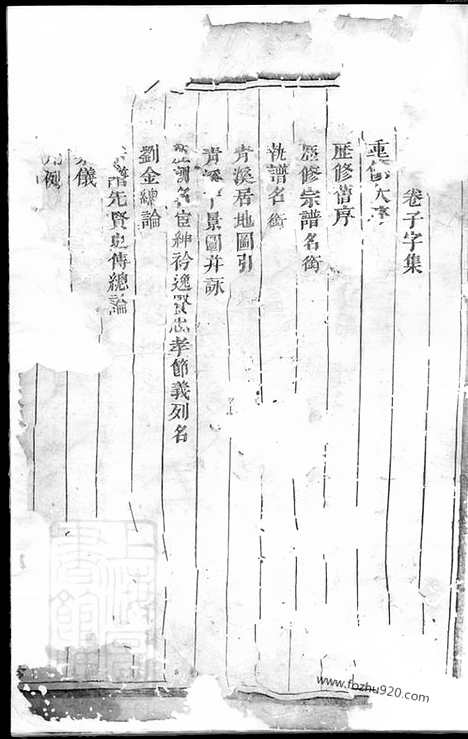 卷子字集
重修
歷修舊序
歷修宗譜名銜
執譜名銜
青溪居地圖引
景圖并詠
宦紳衿逸賢忠孝節義列名
劉金總論
先賢史傳總論
儀
例
上海圖書館
www.fozhu920.com